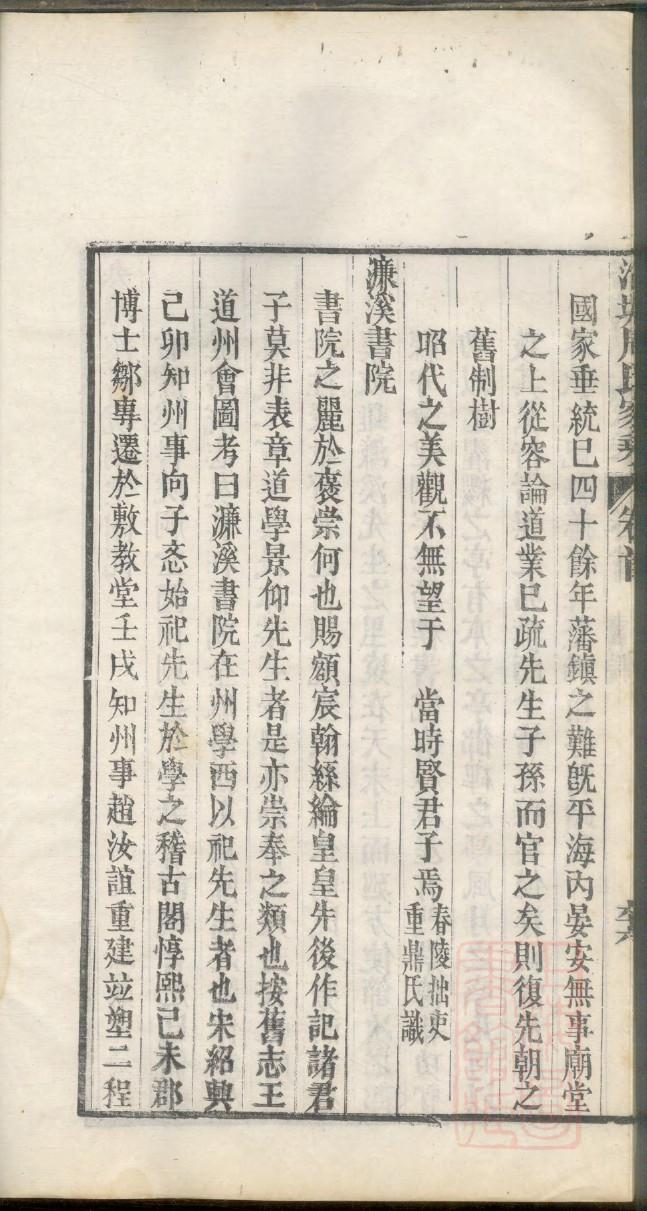 周氏家乘
卷首
國家垂統已四十餘年藩鎮之難旣平海內晏安無事廟堂
之上從容論道業已疏先生子孫而官之矣則復先朝之
舊制樹
昭代之美觀不無望于 當時賢君子焉
春陵拙吏
重鼎氏識
濂溪書院
書院之麗於褒崇何也賜額宸翰絲綸皇皇先後作記諸君
子莫非表章道學景仰先生者是亦崇奉之類也按舊志王
道州會圖考曰濂溪書院在州學西以祀先生者也宋紹興
己卯知州事向子忞始祀先生於學之稽古閣惇熙己未郡
博士鄒尃遷於敷教堂壬戌知州事趙汝誼重建竝塑二程